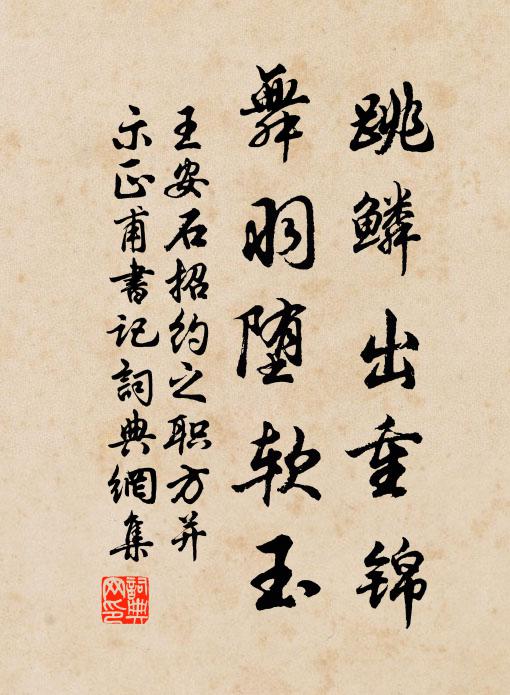 跳鳞出重锦
舞羽堕软玉
王安石招约之职方并
示正甫書记詞典網集
詞典网印